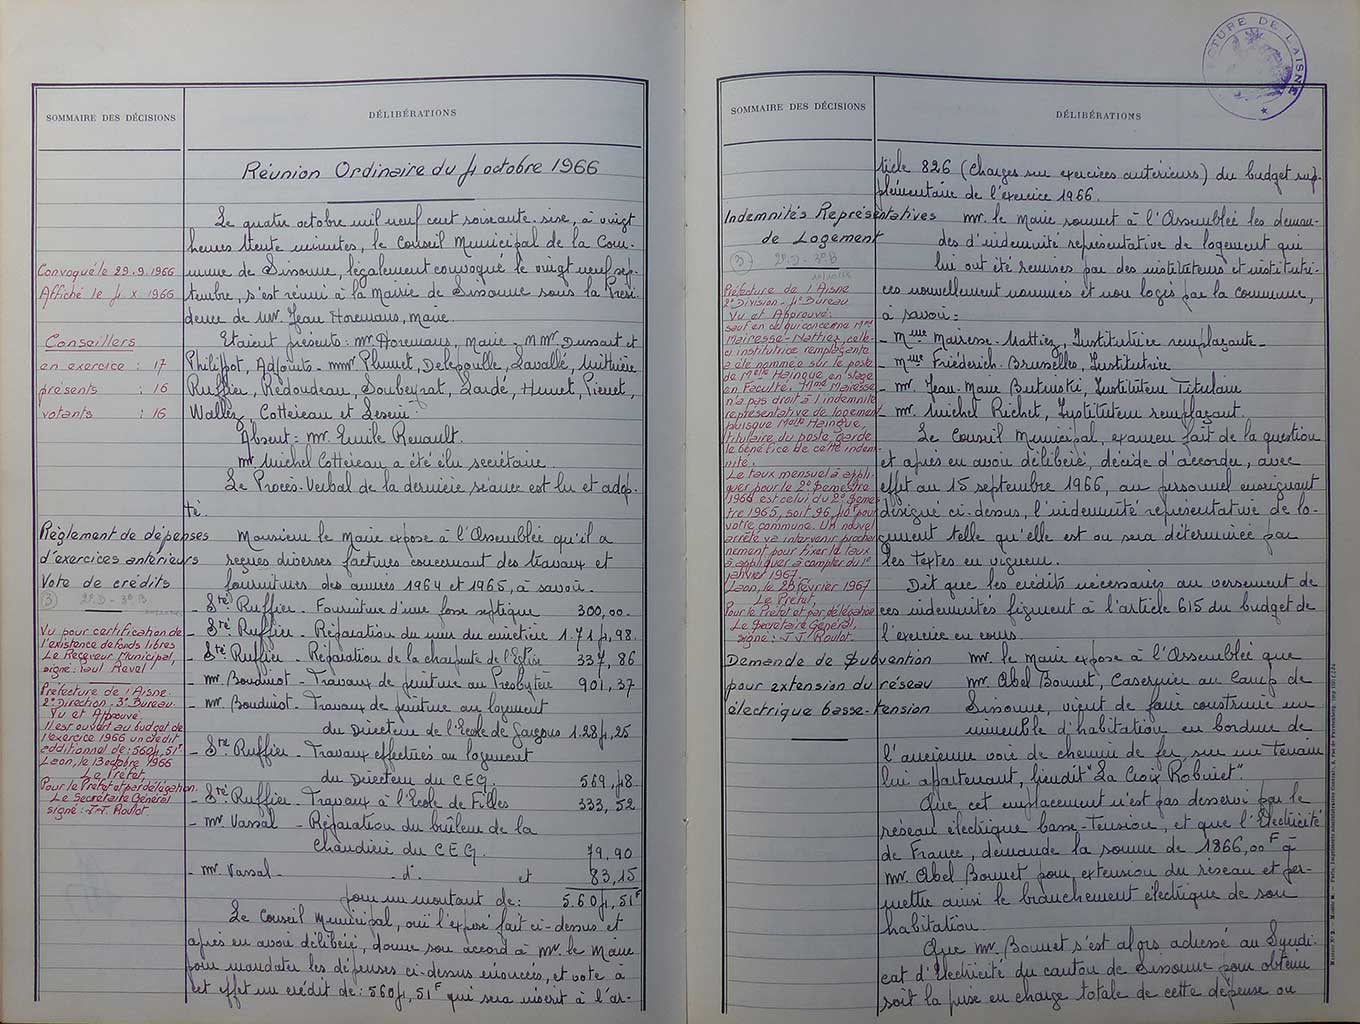 SOMMAIRE DES DÉCISIONS
DÉLIBÉRATIONS
Réunion Ordinaire du 4 octobre 1966
Le quatre octobre mil neuf cent soixante-six, à vingt
heures trente minutes, le Conseil Municipal de la Com-
mune de Sissonne, légalement convoqué le vingt neuf sep-
tembre, s'est réuni à la Mairie de Sissonne sous la Prési-
dence de Mr. Jean Horemans, Maire.
Convoqué le 29.9.1966
Affiché le 4 X 1966
Conseillers
en exercice : 17
présents : 16
votants : 16
Etaient présents: Mr Horemans, Maire - MMr Dussart et
Philippot, Adjoints - MMr Plumet, Lavallé,
Ruffier, Rédoudeau, Soubeyrat, Lardé, Hunet, Pienet,
Wallez, Cottereau et
Absent: Mr. Emile Renault.
Mr Michel Cottereau a été élu secrétaire.
Le Procès-Verbal de la dernière séance est lu et adop-
té.
Règlement de dépenses
d'exercices antérieurs
Vote de crédits
3 2e D - 3e B
Monsieur le Maire expose à l'Assemblée qu'il a
reçues diverses factures concernant des travaux et
fournitures des années 1964 et 1965, à savoir.
- Sté Ruffier - Fourniture d'une fosse septique 300,00.
- Sté Ruffier - Réparation du mur du cimetière 1.714,98.
- Sté Ruffier - Réparation de la charpente de l'Eglise 337,86
- Mr. Boudinot - Travaux de peinture au Presbytère 901,37
- Mr. Boudinot - Travaux de peinture au logement
du Directeur de l'Ecole de Garçons 1.284,25
- Sté Ruffier - Travaux effectués au logement
du Directeur du CEG. 569,48
- Sté Ruffier - Travaux à l'Ecole de Filles 333,52
- Mr. Vassal - Réparation du brûleur de la
Chaudière du CEG. 79,90
- Mr Vassal - d°. et 83,15
pour un montant de: 5.604,51F
Vu pour certification de
l'existence de fonds libres
Le Receveur Municipal,
signé: Paul Revel
Préfecture de l'Aisne.
2e Direction - 3e Bureau
Vu et Approuvé
Il est ouvert au budget de
l'exercice 1966 un crédit
additionnel de: 5604,51F
Laon, le 13 octobre 1966
Le Préfet,
Pour le Préfet et par délégation,
Le Secrétaire Général
signé: J.J. Roulot.
Le Conseil Municipal, ouï l'exposé fait ci-dessus et
après en avoir délibéré, donne son accord à Mr. le Maire
pour mandater les dépenses ci-dessus énoncées, et vote à
cet effet un crédit de: 5604,51F qui sera inscrit à l'ar-
PRÉFECTURE DE L'AISNE
SOMMAIRE DES DÉCISIONS
DÉLIBÉRATIONS
ticle 826 (Charges sur exercices antérieurs) du budget sup-
plémentaire de l'exercice 1966.
Indemnités Représentatives
de Logement
3 2e D - 3e B
Mr. le Maire soumet à l'Assemblée les deman-
des d'indemnité représentative de logement qui
lui ont été remises par des instituteurs et institutri-
ces nouvellement nommés et non logés par la commune,
à savoir:
- Mme Mairesse-Mattiez, Institutrice remplaçante -
- Mme Friéderich-Bruxelles, Institutrice
- Mr. Jean-Marie Instituteur Titulaire
- Mr. Michel Richet, Instituteur remplaçant.
Le Conseil Municipal, examen fait de la question
et après en avoir délibéré, décide d'accorder, avec
effet au 15 septembre 1966, au personnel enseignant
désigné ci-dessus, l'indemnité représentative de lo-
gement telle qu'elle est ou sera déterminée par
les textes en vigueur.
Dit que les crédits nécessaires au versement de
ces indemnités figurent à l'article 615 du budget de
l'exercice en cours.
Préfecture de l'Aisne
2e Division - 4e Bureau
Vu et Approuvé:
sauf en ce qui concerne Mme
Mairesse-Mattiez, celle-
ci institutrice remplaçante
a été nommée sur le poste
de Melle Hainque en stage
en Faculté. Mme Mairesse
n'a pas droit à l'indemnité
représentative de logement
puisque Melle Hainque,
titulaire du poste garde
le bénéfice de cette indem-
nité.
Le taux mensuel à appli-
quer pour le 2e semestre
1966 est celui du 2e semes-
tre 1965, soit 96,40F pour
votre commune. Un nouvel
arrêté va intervenir prochai-
nement pour fixer le taux
à appliquer à compter du 1er
janvier 1967.
Laon, le 28 février 1967
Le Préfet,
Pour le Préfet et par délégation
Le Secrétaire Général,
signé: J.J. Roulot.
Demande de Subvention
pour extension du réseau
électrique basse-tension
Mr. le Maire expose à l'Assemblée que
Mr. Abel Bonnet, Casernier au Camp de
Sissonne, vient de faire construire un
immeuble d'habitation en bordure de
l'ancienne voie de chemin de fer sur un terrain
lui appartenant, lieudit "La Croix Robinet".
Que cet emplacement n'est pas desservi par le
réseau électrique basse-tension, et que l'Electricité
de France, demande la somme de 1866,00F à
Mr. Abel Bonnet pour extension du réseau et per-
mettre ainsi le branchement électrique de son
habitation.
Que Mr. Bonnet s'est alors adressé au Syndi-
cat d'Electricité du canton de Sissonne pour obtenir
soit la prise en charge totale de cette dépense ou